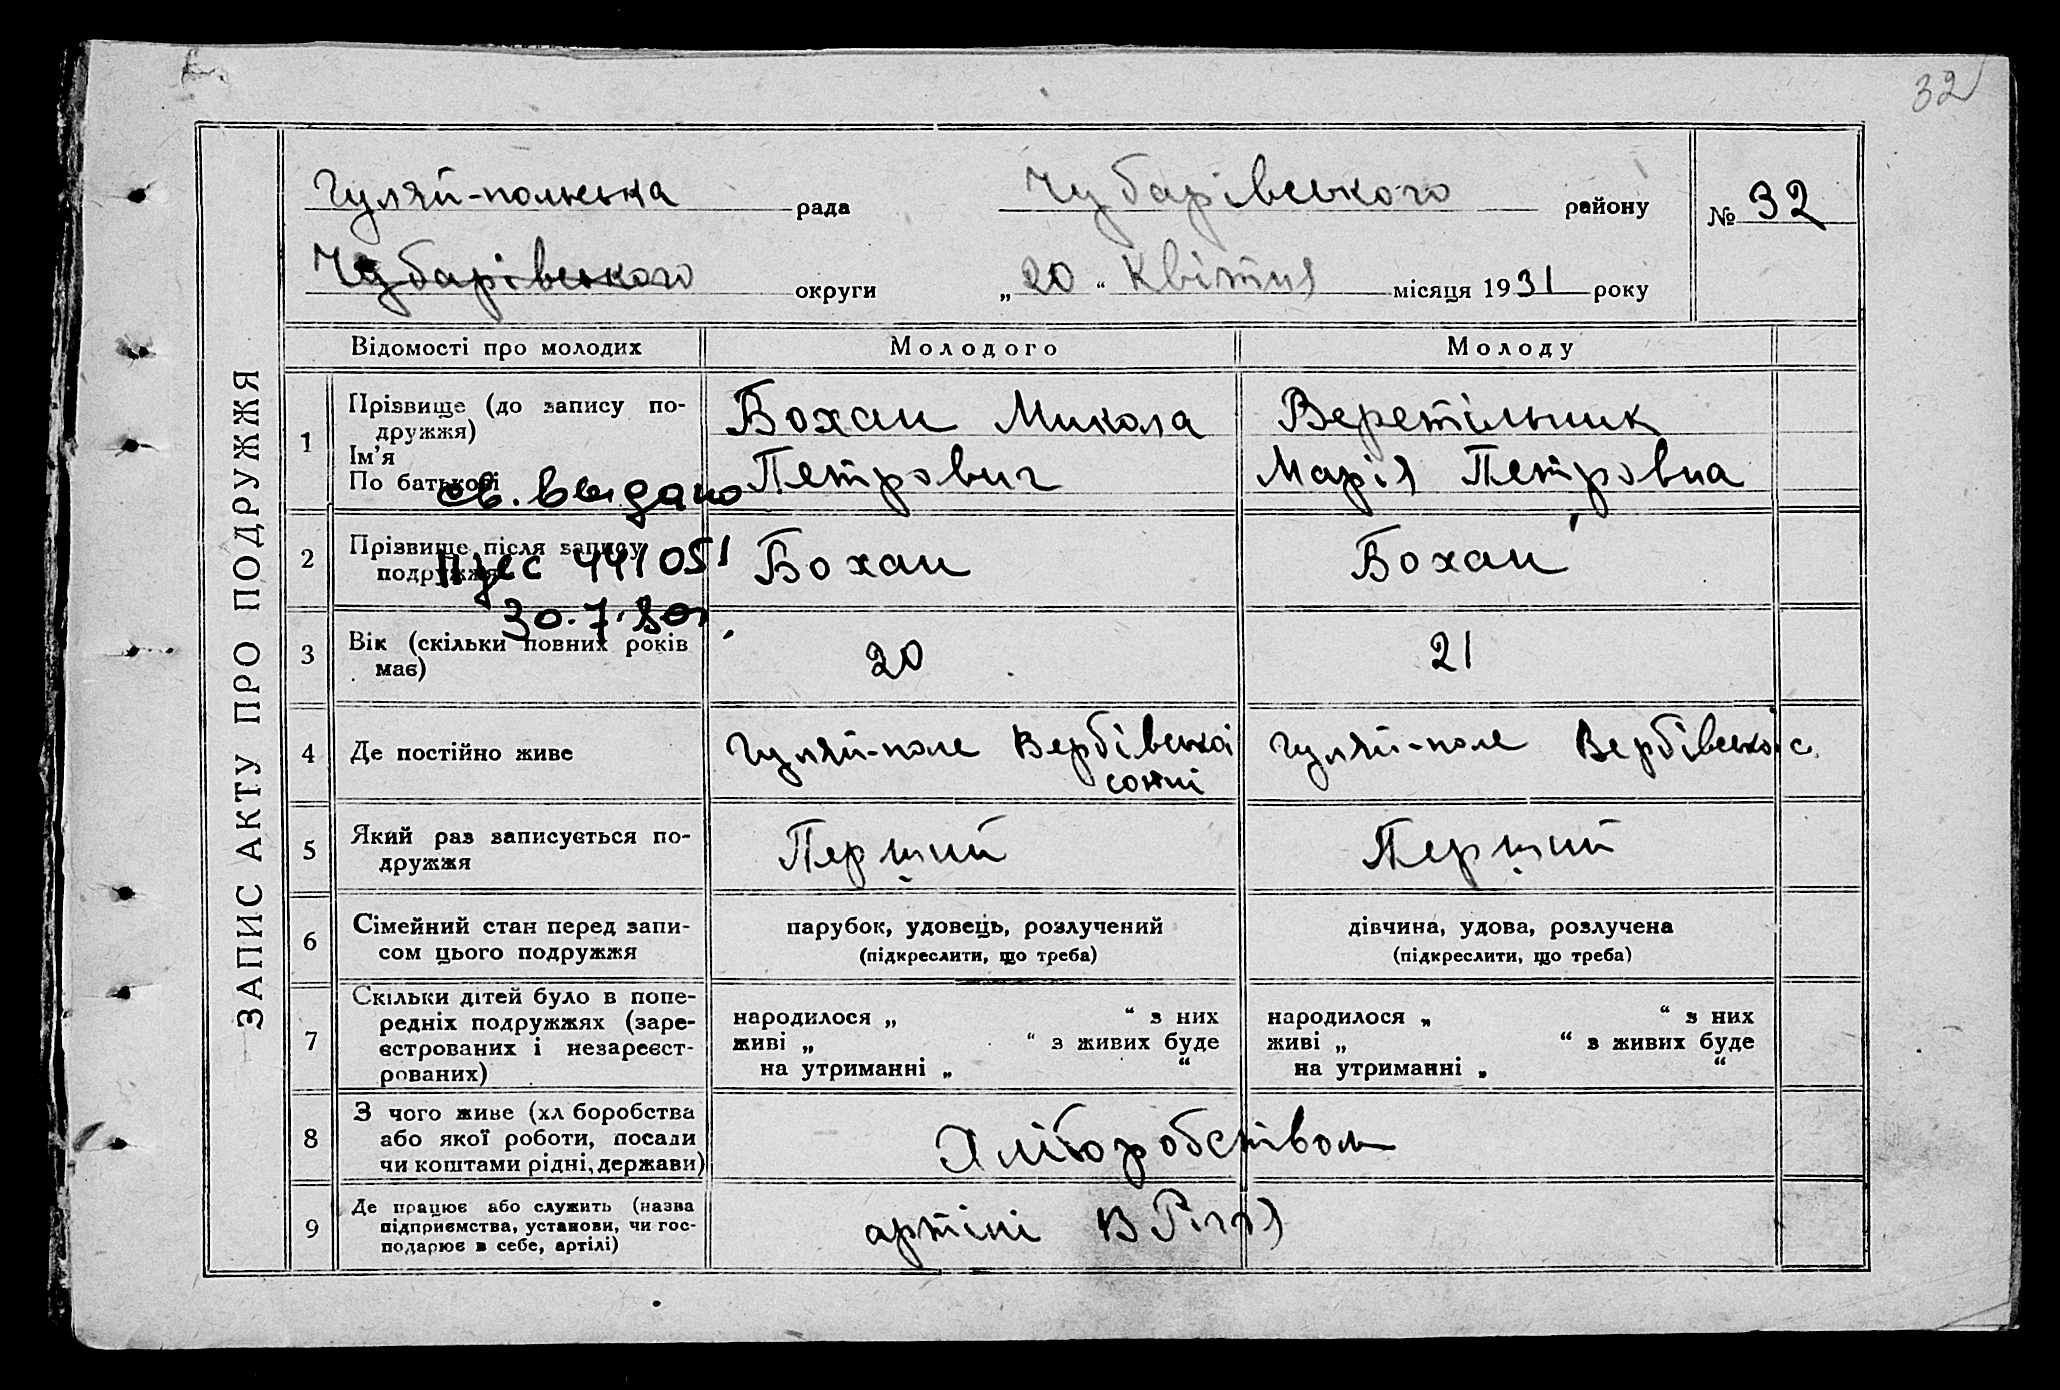 32
ЗАПИС АКТУ ПРО ПОДРУЖЖЯ
Гуляй-польська рада Чубарівського району № 32
Чубарівського округи „20“ Квітня місяця 1931 року
Відомості про молодих Молодого Молоду
1 Прізвище (до запису по-
дружжя)
Ім’я
По батькові
Бохан Микола
Петрович
Веретільник
Марія Петровна
св. выдано
441051
30.7.80
2 Прізвище після запису
подружжя
Бохан
Бохан
3 Вік (скільки повних років
має)
20
21
4 Де постійно живе
Гуляй-поле Вербівської
сотні
Гуляй-поле Вербівської с.
5 Який раз записується по-
дружжя
Перший
Перший
6 Сімейний стан перед запи-
сом цього подружжя
парубок, удовець, розлучений
(підкреслити, що треба)
дівчина, удова, розлучена
(підкреслити, що треба)
7 Скільки дітей було в попе-
редніх подружжях (заре-
єстрованих і незареєст-
рованих)
народилося „ “ з них
живі „ “ з живих буде
на утриманні „ “
народилося „ “ з них
живі „ “ з живих буде
на утриманні „ “
8 З чого живе (хл боробства
або якої роботи, посади
чи коштами рідні, держави)
Хліборобством
9 Де працює або служить (назва
підприємства, установи, чи гос-
подарює в себе, артілі)
артілі